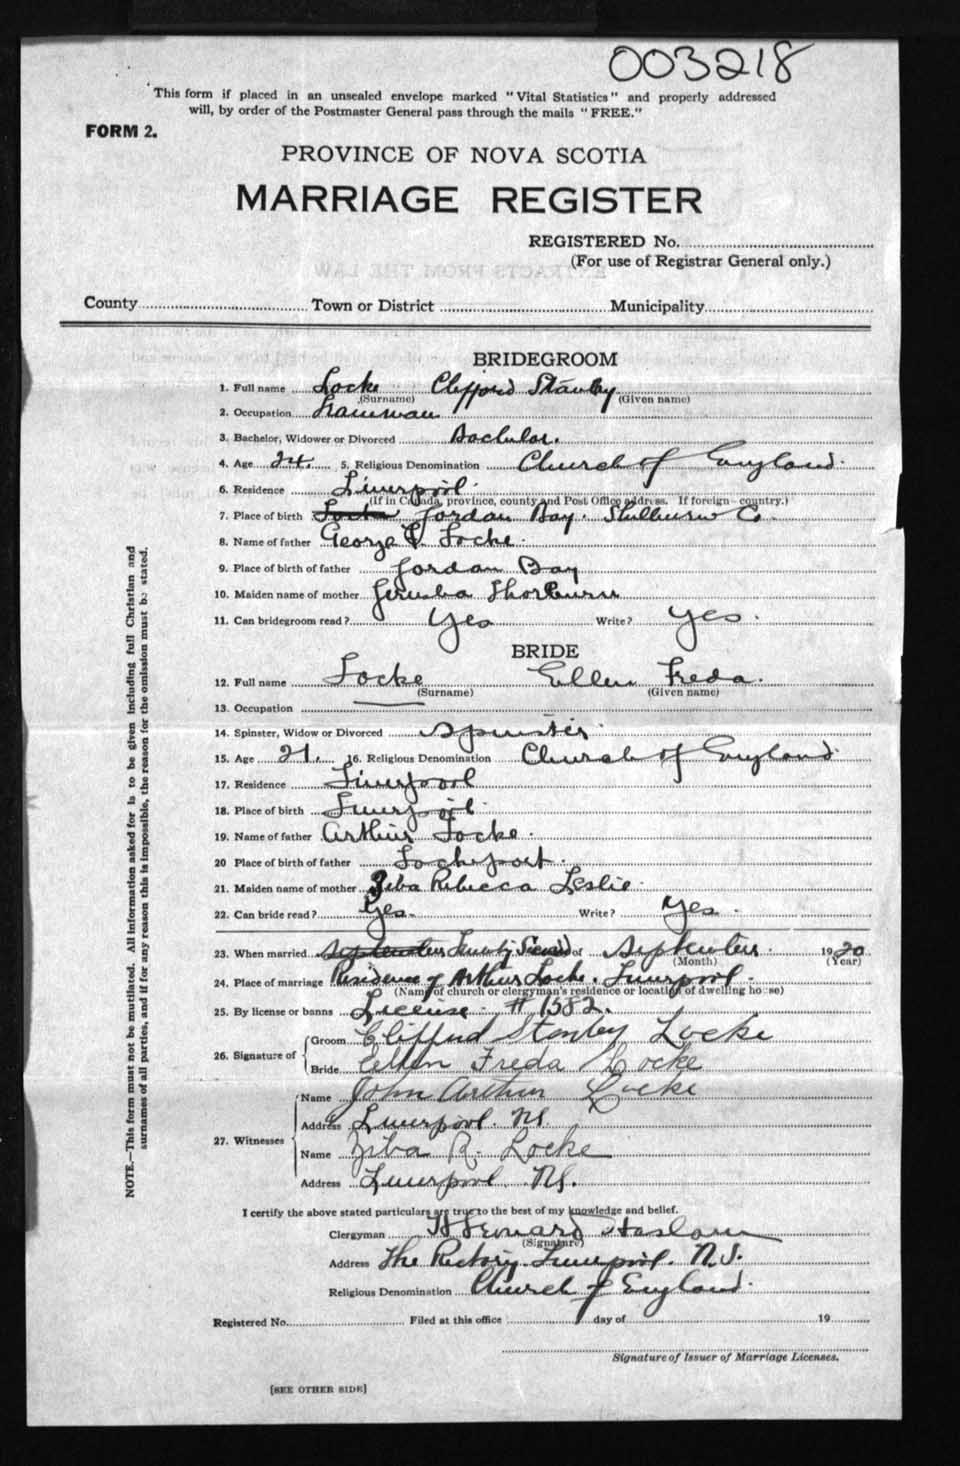 003218
This form if placed in an unsealed envelope marked "Vital Statistics" and properly addressed
will, by order of the Postmaster General pass through the mails "FREE."
FORM 2.
PROVINCE OF NOVA SCOTIA
MARRIAGE REGISTER
REGISTERED No.
(For use of Registrar General only.)
County Town or District Municipality
BRIDEGROOM
1. Full name Locke Clifford Stanley
(Surname) (Given name)
2. Occupation
3. Bachelor, Widower or Divorced Bachelor.
4. Age 24. 5. Religious Denomination Church of England.
6. Residence Liverpool.
(If in Canada, province, county and Post Office address. If foreign—country.)
7. Place of birth Jordan Bay. Shelburne Co.
8. Name of father George Locke.
9. Place of birth of father Jordan Bay
10. Maiden name of mother Jerusha Thorburn
11. Can bridegroom read? Yes Write? Yes.
BRIDE
12. Full name Locke Ellen Freda.
(Surname) (Given name)
13. Occupation
14. Spinster, Widow or Divorced Spinster.
15. Age 21. 16. Religious Denomination Church of England.
17. Residence Liverpool
18. Place of birth Liverpool.
19. Name of father Arthur Locke.
20 Place of birth of father Lockeport.
21. Maiden name of mother Ziba Rebecca Leslie.
22. Can bride read? Yes. Write? Yes.
23. When married September Twenty Second of September. 1920
(Month) (Year)
24. Place of marriage Residence of Arthur Locke. Liverpool.
(Name of church or clergyman's residence or location of dwelling house)
25. By license or banns License. #1582.
26. Signature of
Groom Clifford Stanley Locke
Bride Ellen Freda Locke
27. Witnesses
Name John Arthur Locke
Address Liverpool. NS.
Name Ziba R. Locke
Address Liverpool. NS.
I certify the above stated particulars are true to the best of my knowledge and belief.
Clergyman Haslam
(Signature)
Address The Rectory. Liverpool. N.S.
Religious Denomination Church of England.
Registered No. Filed at this office day of 19
Signature of Issuer of Marriage Licenses.
[SEE OTHER SIDE]
NOTE.—This form must not be mutilated. All information asked for is to be given including full Christian and
surnames of all parties, and if for any reason this is impossible, the reason for the omission must be stated.